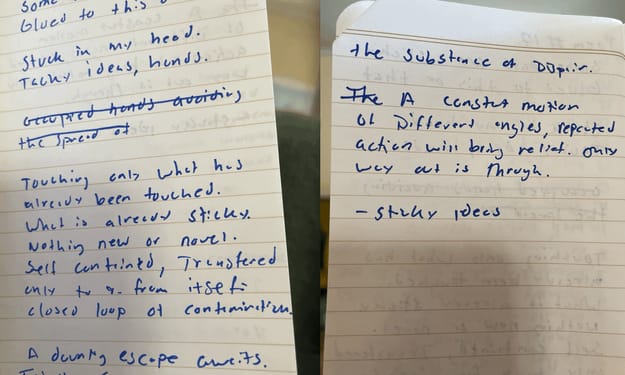 Some
Glued to this
Stuck in my head.
Tacky ideas, hands.
Occupied hands avoiding
the spread of
Touching only what has
already been touched.
What is already sticky.
Nothing new or novel.
Self contained, Transfered
only to & from itself:
closed loop of contamination.
A daunting escape awaits.
the substance of Dispair.
The A constant motion
of Different angles, repeated
action will bring relief. only
way out is through.
- sticky ideas